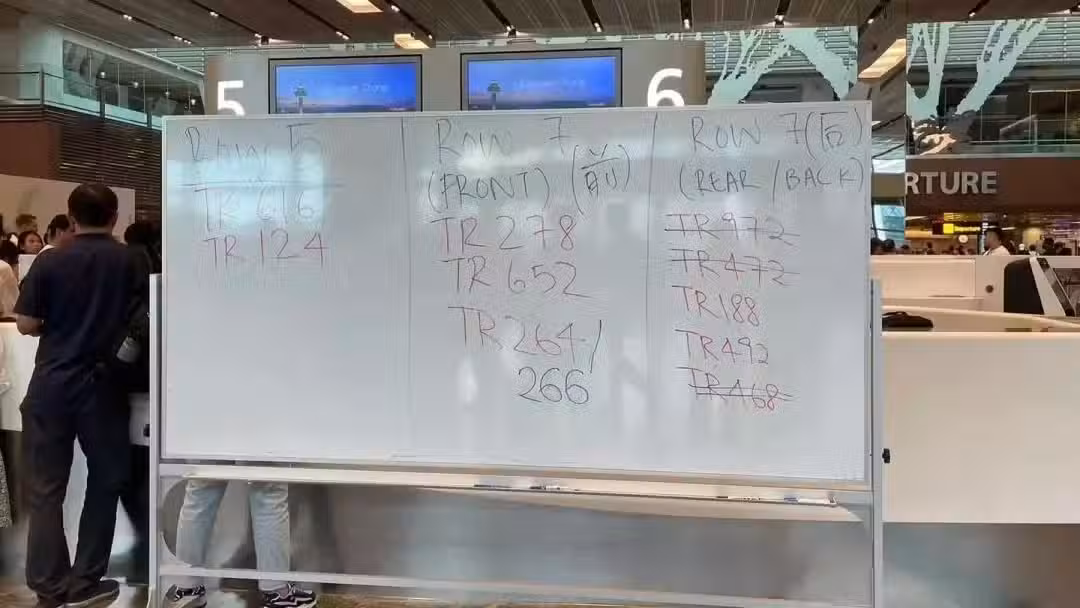 5
6
ROW 5
TR 616
TR 124
ROW 7
(FRONT) (前)
TR 278
TR 652
TR 264/
266
ROW 7 (后)
(REAR / BACK)
TR 972
TR 472
TR188
TR492
TR468
RTURE